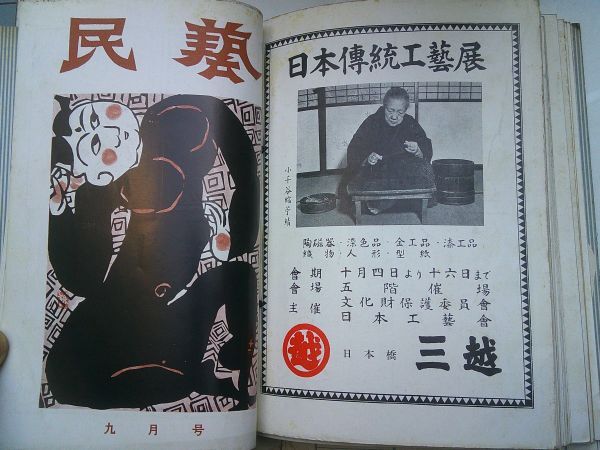 民藝
九月号
日本傳統工藝展
小千谷縮苧績
陶磁器・染色品・金工品・漆工品
織物・人形・型紙
會期 十月四日より十六日まで
會場 五階催場
主催 文化財保護委員會
日本工藝會
越
日本橋 三越